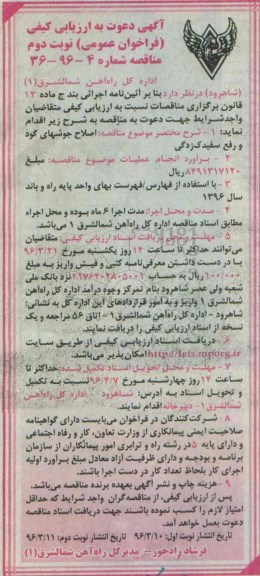 آگهی دعوت به ارزیابی کیفی
(فراخوان عمومی) نوبت دوم
مناقصه شماره ۴-۹۶-۳۶
اداره کل راه‌آهن شمالشرق(۱)
(شاهرود) در نظر دارد بنا بر آئین‌نامه اجرائی بند ج ماده ۱۲
قانون برگزاری مناقصات نسبت به ارزیابی کیفی متقاضیان
واجد شرایط جهت دعوت به مناقصه به شرح زیر اقدام
نماید: ۱- شرح مختصر موضوع مناقصه: اصلاح جوشهای گود
و رفع سفیدک‌زدگی
۲- برآورد انجام عملیات موضوع مناقصه: مبلغ
۸۴۹۱۳۱۷۱۲۰ ریال
۳- با استفاده از فهارس: فهرست بهای واحد پایه راه و باند
سال ۱۳۹۶
۴- مدت و محل اجرا: مدت اجرا ۶ ماه بوده و محل اجراء
مطابق اسناد مناقصه اداره کل راه‌آهن شمالشرق ۱ می‌باشد.
۵- مهلت و محل دریافت اسناد ارزیابی کیفی: متقاضیان
می‌توانند حداکثر تا ساعت ۱۴ روز یکشنبه مورخ ۹۶/۳/۲۱
با در دست داشتن معرفی‌نامه کتبی و فیش واریز به مبلغ
۱۰۰/۰۰۰ ریال به حساب ۲۱۷۶۴۰۲۸۰۵۰۰۲ نزد بانک ملی
شعبه ولی عصر شاهرود بنام تمرکز وجوه درآمد اداره کل راه‌آهن
شمالشرق ۱ واریز و به امور قراردادهای این اداره کل به نشانی:
شاهرود - اداره کل راه‌آهن شمالشرق۱- اتاق ۵۶ مراجعه و یک
نسخه از اسناد ارزیابی کیفی را دریافت نمایند.
۶- دریافت اسناد ارزیابی کیفی از طریق سایت
http://iets.mporg.ir امکان‌پذیر می‌باشد.
۷- مهلت و محل تحویل اسناد تکمیل شده: حداکثر تا
ساعت ۱۴ روز چهارشنبه مورخ ۹۶/۴/۷ نسبت به تکمیل
و تحویل اسناد به آدرس: شاهرود - اداره کل راه‌آهن
شمالشرق۱- دبیرخانه اقدام نمایند.
شرکت‌کنندگان در فراخوان می‌بایست دارای گواهینامه
صلاحیت ایمنی پیمانکاری از وزارت تعاون، کار و رفاه اجتماعی
و دارای پایه ۵ در رشته راه و ترابری امور پیمانکاران از سازمان
برنامه و بودجه و دارای ظرفیت آزاد معادل مبلغ برآورد اولیه
اجرای کار بلحاظ تعداد کار در دست اجرا باشند.
۹- هزینه چاپ و نشر آگهی بعهده برنده مناقصه می‌باشد.
پس از ارزیابی کیفی، از مناقصه‌گران واجد شرایط که حداقل
امتیاز لازم را کسب نموده باشند جهت دریافت اسناد مناقصه
دعوت بعمل خواهد آمد.
تاریخ انتشار نوبت اول: ۹۶/۳/۱۰ تاریخ انتشار نوبت دوم: ۹۶/۳/۱۱
فرشاد رادخور - مدیرکل راه‌آهن شمالشرق(۱)